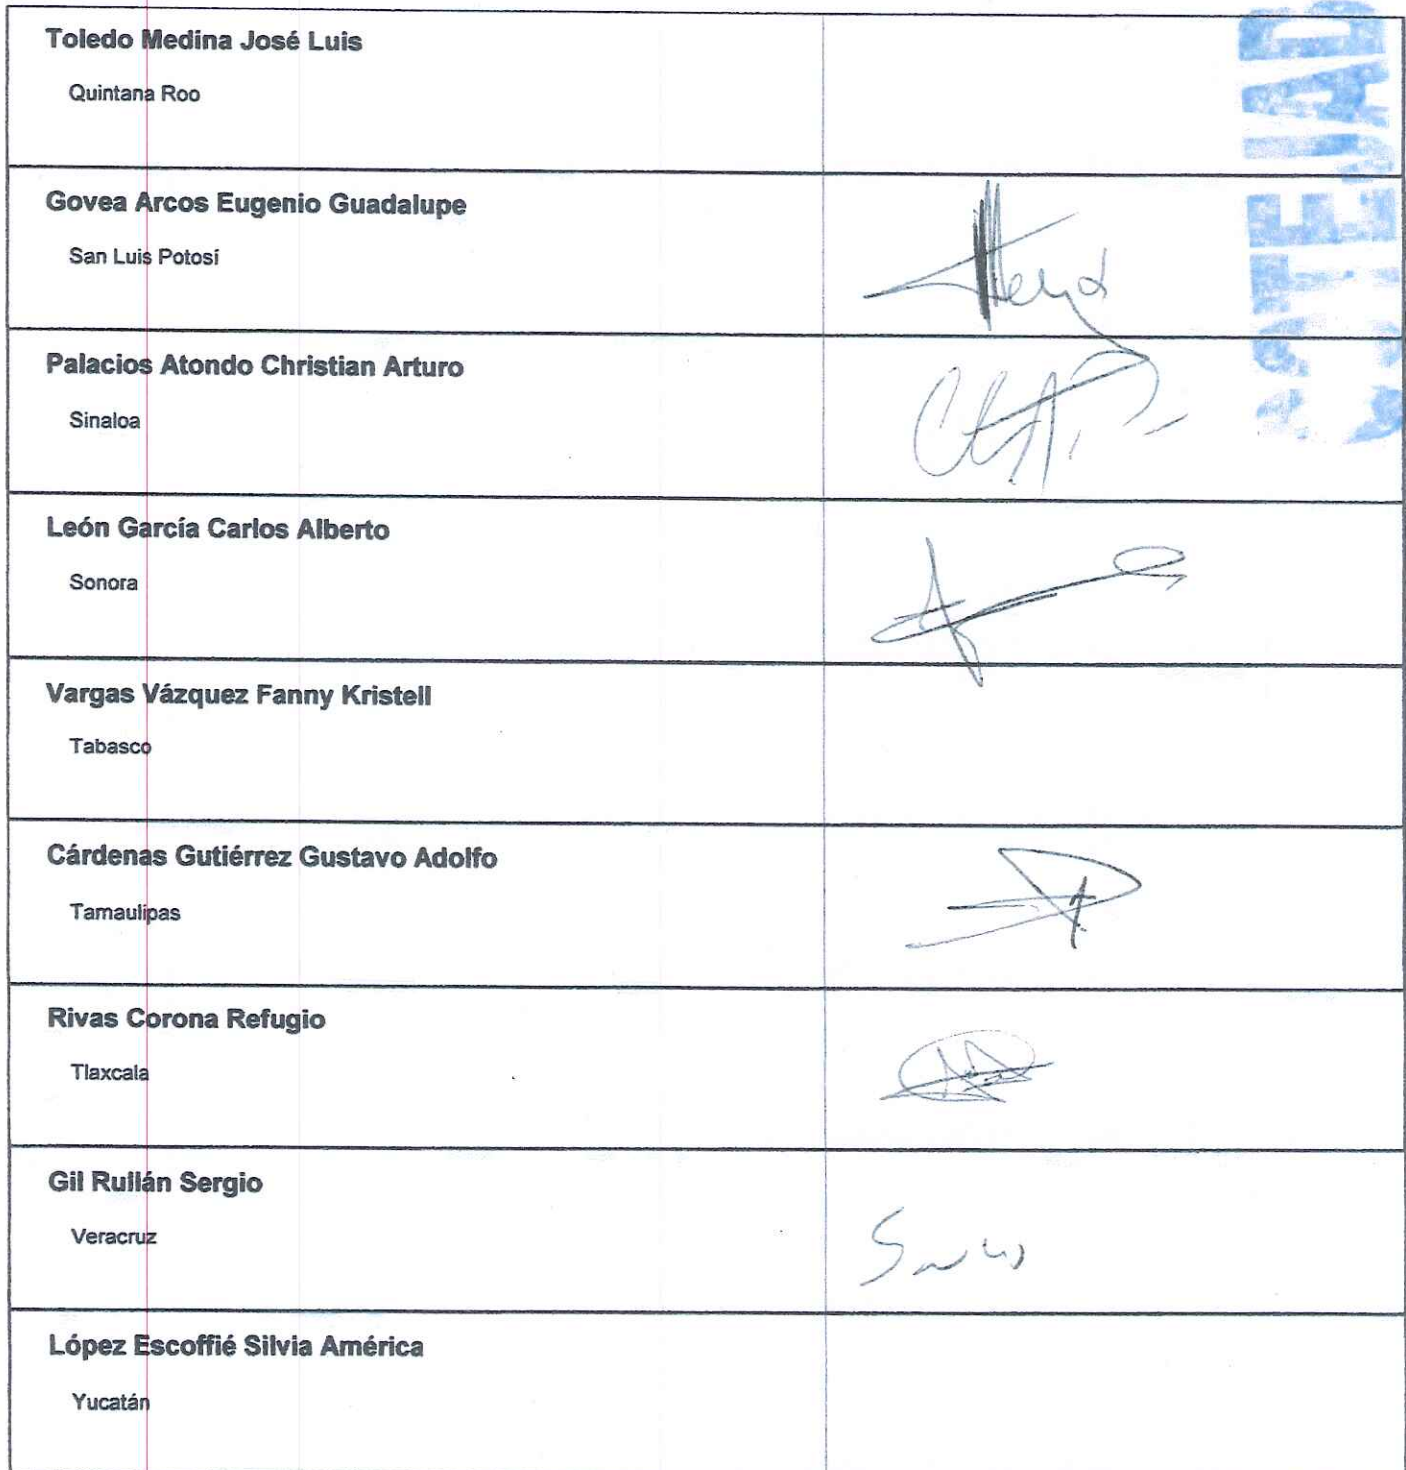 Toledo Medina José Luis
Quintana Roo
Govea Arcos Eugenio Guadalupe
San Luis Potosí
Palacios Atondo Christian Arturo
Sinaloa
León García Carlos Alberto
Sonora
Vargas Vázquez Fanny Kristell
Tabasco
Cárdenas Gutiérrez Gustavo Adolfo
Tamaulipas
Rivas Corona Refugio
Tlaxcala
Gil Rullán Sergio
Veracruz
López Escoffié Silvia América
Yucatán